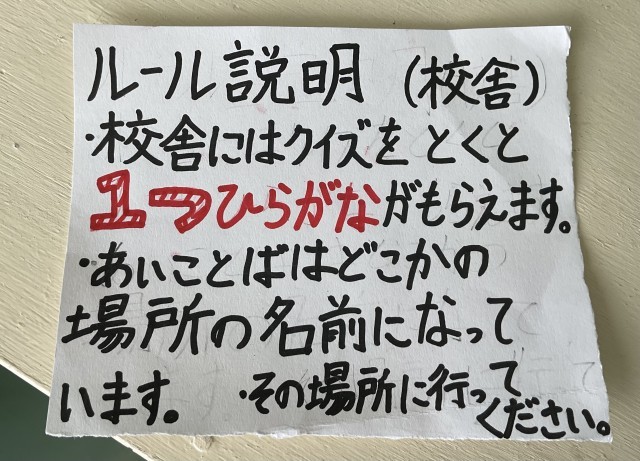 ルール説明（校舎）
・校舎にはクイズをとくと
1つひらがながもらえます。
・あいことばはどこかの
場所の名前になって
います。 ・その場所に行って
ください。